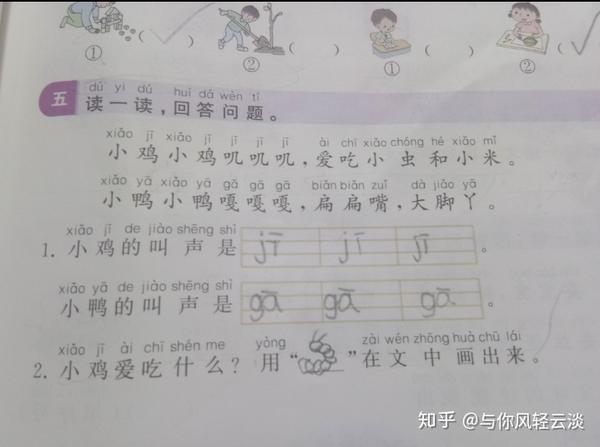 ①( ) ②( ) ①( ) ②( )
dú yi dú huí dá wèn tí
五 读一读，回答问题。
xiǎo jī xiǎo jī jī jī jī ài chī xiǎo chóng hé xiǎo mǐ
小鸡小鸡叽叽叽，爱吃小虫和小米。
xiǎo yā xiǎo yā gā gā gā biǎn biǎn zuǐ dà jiǎo yā
小鸭小鸭嘎嘎嘎，扁扁嘴，大脚丫。
xiǎo jī de jiào shēng shì
1. 小鸡的叫声是 jī jī jī 。
xiǎo yā de jiào shēng shì
小鸭的叫声是 gā gā gā 。
xiǎo jī ài chī shén me yòng zài wén zhōng huà chū lái
2. 小鸡爱吃什么？用“ ”在文中画出来。
知乎 @与你风轻云淡